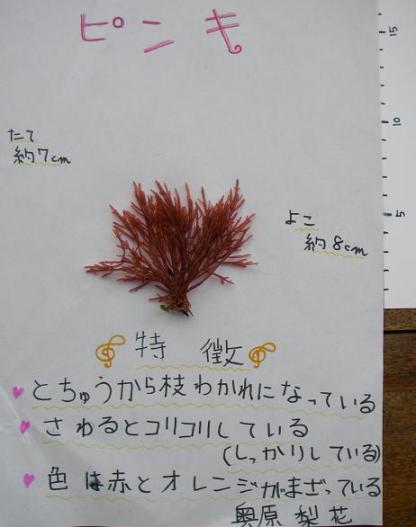 ピンキ
15
たて
約7cm
10
よこ
約8cm
5
特徴
とちゅうから枝わかれになっている
さわるとコリコリしている
(しっかりしている)
色は赤とオレンジがまざっている
奥原 梨花